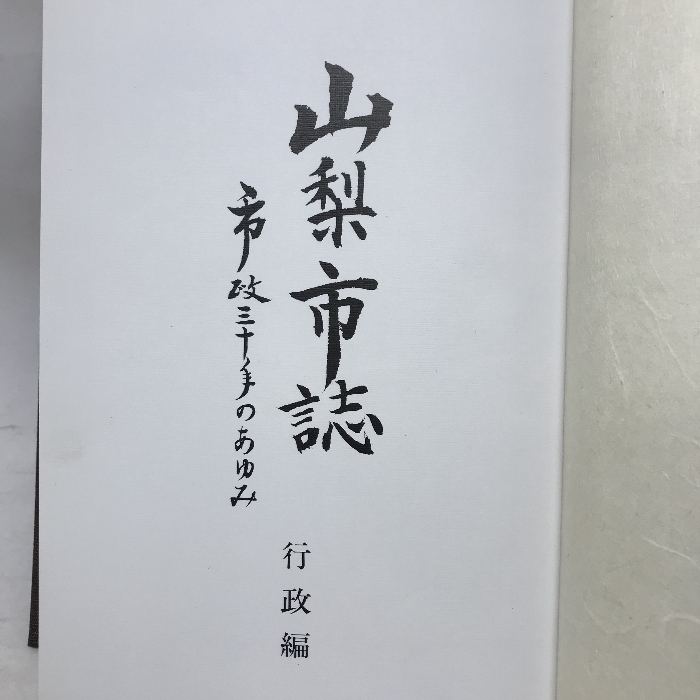 山梨市誌
市政三十年のあゆみ
行政編